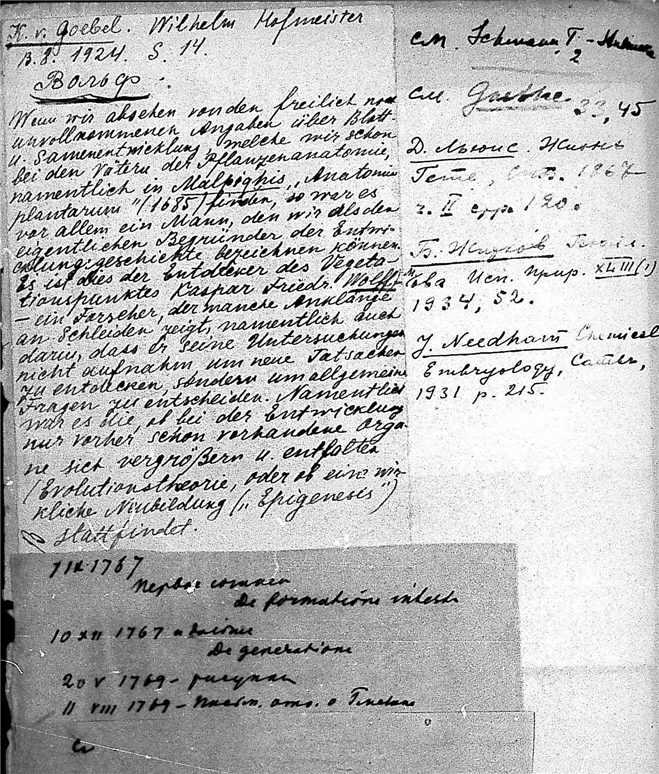 K. v. Goebel. Wilhelm Hofmeister
B. 8. 1924. S. 14.
Вольф
Wenn wir absehen von den freilich noch
unvollkommenen Angaben über Blatt-
u. Samenentwicklung, welche wir schon
bei den Vätern der Pflanzenanatomie,
namentlich in Malpighis „Anatomia
plantarum" (1685) finden, so war es
vor allem ein Mann, den wir als den
eigentlichen Begründer der Entwi-
cklungsgeschichte bezeichnen können.
Es ist dies der Entdecker des Vegeta-
tionspunktes Kaspar Friedr. Wolff
– ein Forscher, der manche Anklänge
an Schleiden zeigt, namentlich auch
darin, dass er seine Untersuchungen
nicht aufnahm, um neue Tatsachen
zu entdecken, sondern um allgemeine
Fragen zu entscheiden. Namentlich
war es die, ob bei der Entwicklung
nur vorher schon vorhandene Orga-
ne sich vergrößern u. entfalten
(Evolutionstheorie, oder ob eine wir-
kliche Neubildung („Epigenesis")
stattfindet.
см.
2
см. Goethe 33, 45
Д. Льюис. Жизнь
Гете, 1867
ч. II стр. 120.
Б. Жизнь
XLIII (1)
1934, 52.
J. Needham Chemical
Embryology, Cambr.,
1931 p. 215.
1 IX 1767
De formatione intest
10 XII 1767
De generatione
20 V 1769 – рисунки
11 VIII 1769 –